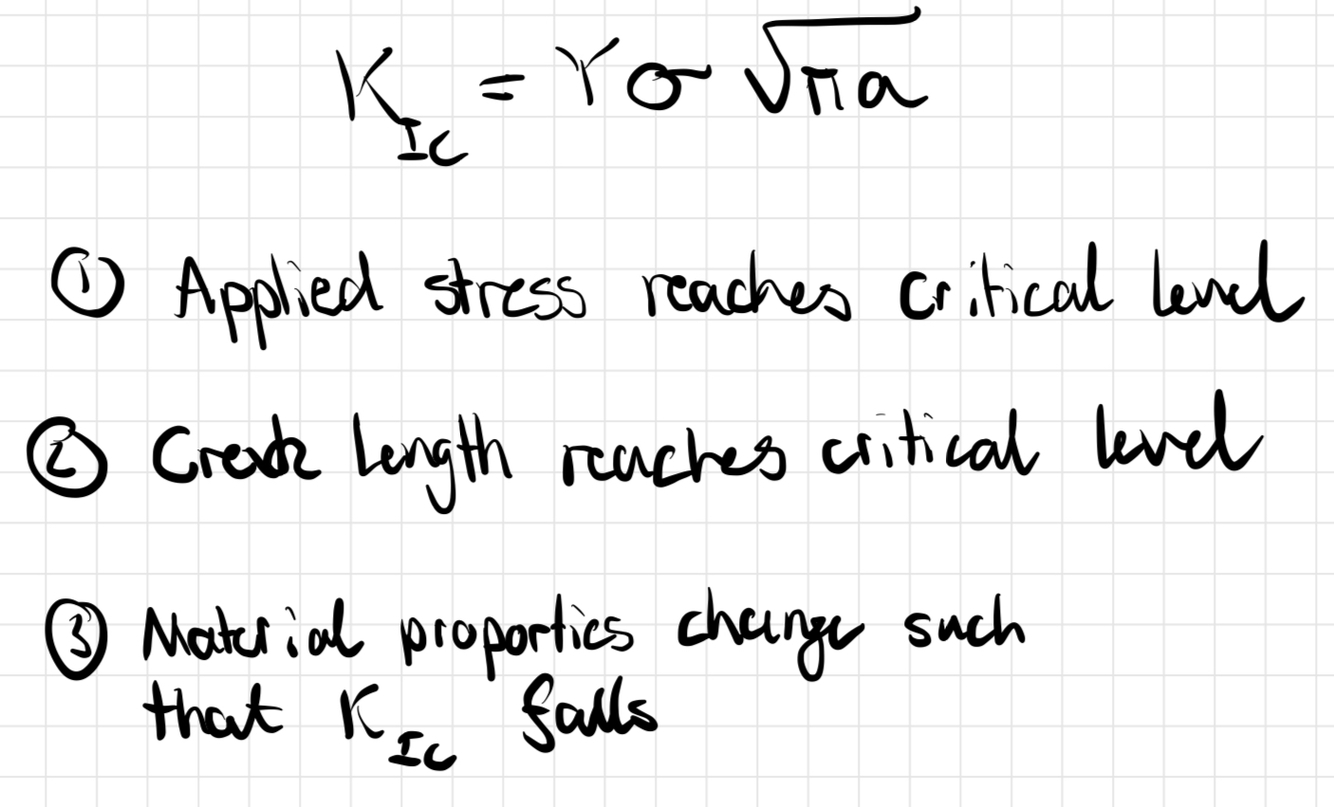 K_Ic = Yσ √πa
① Applied stress reaches critical level
② Crack length reaches critical level
③ Material proporties change such
that K_Ic falls